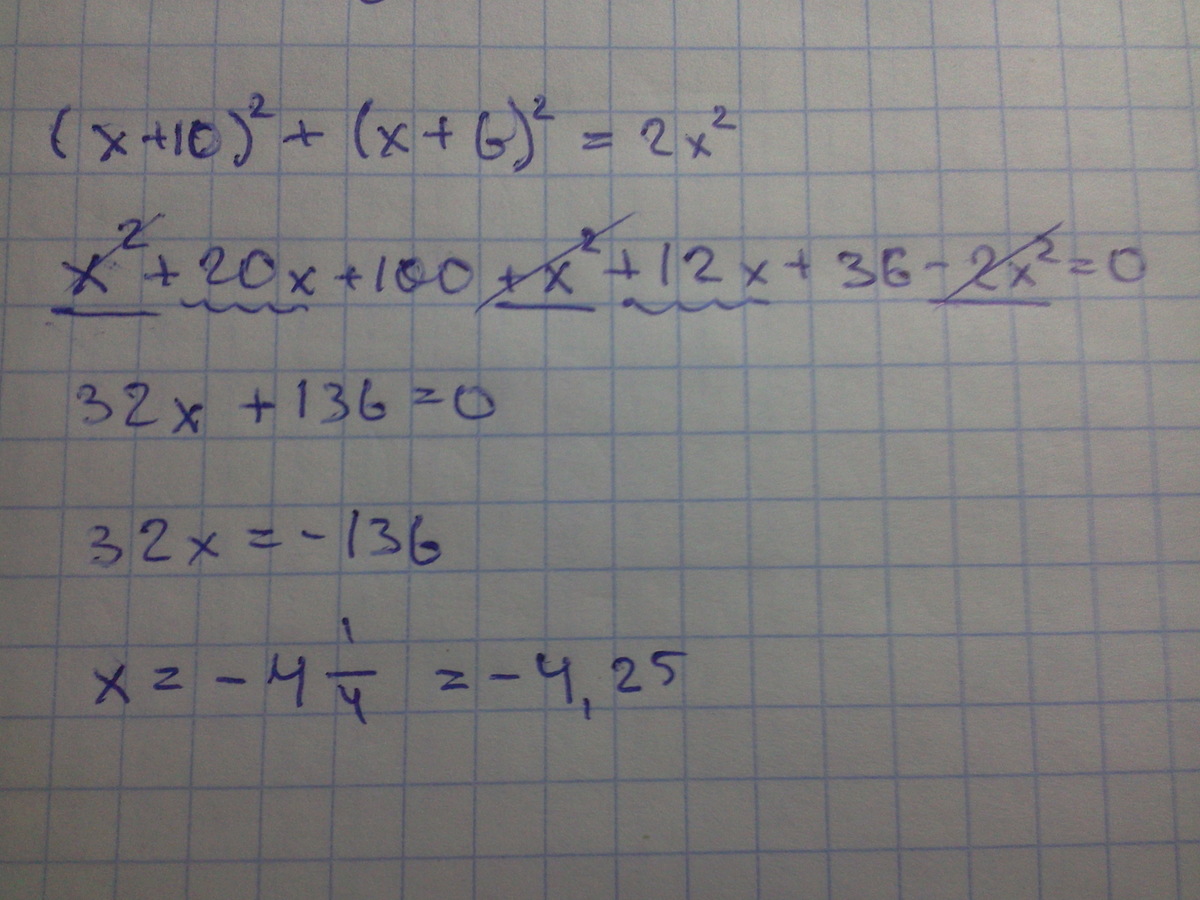 (x+10)² + (x+6)² = 2x²
x² + 20x + 100 + x² + 12x + 36 - 2x² = 0
32x + 136 = 0
32x = -136
x = -4 1/4 = -4,25